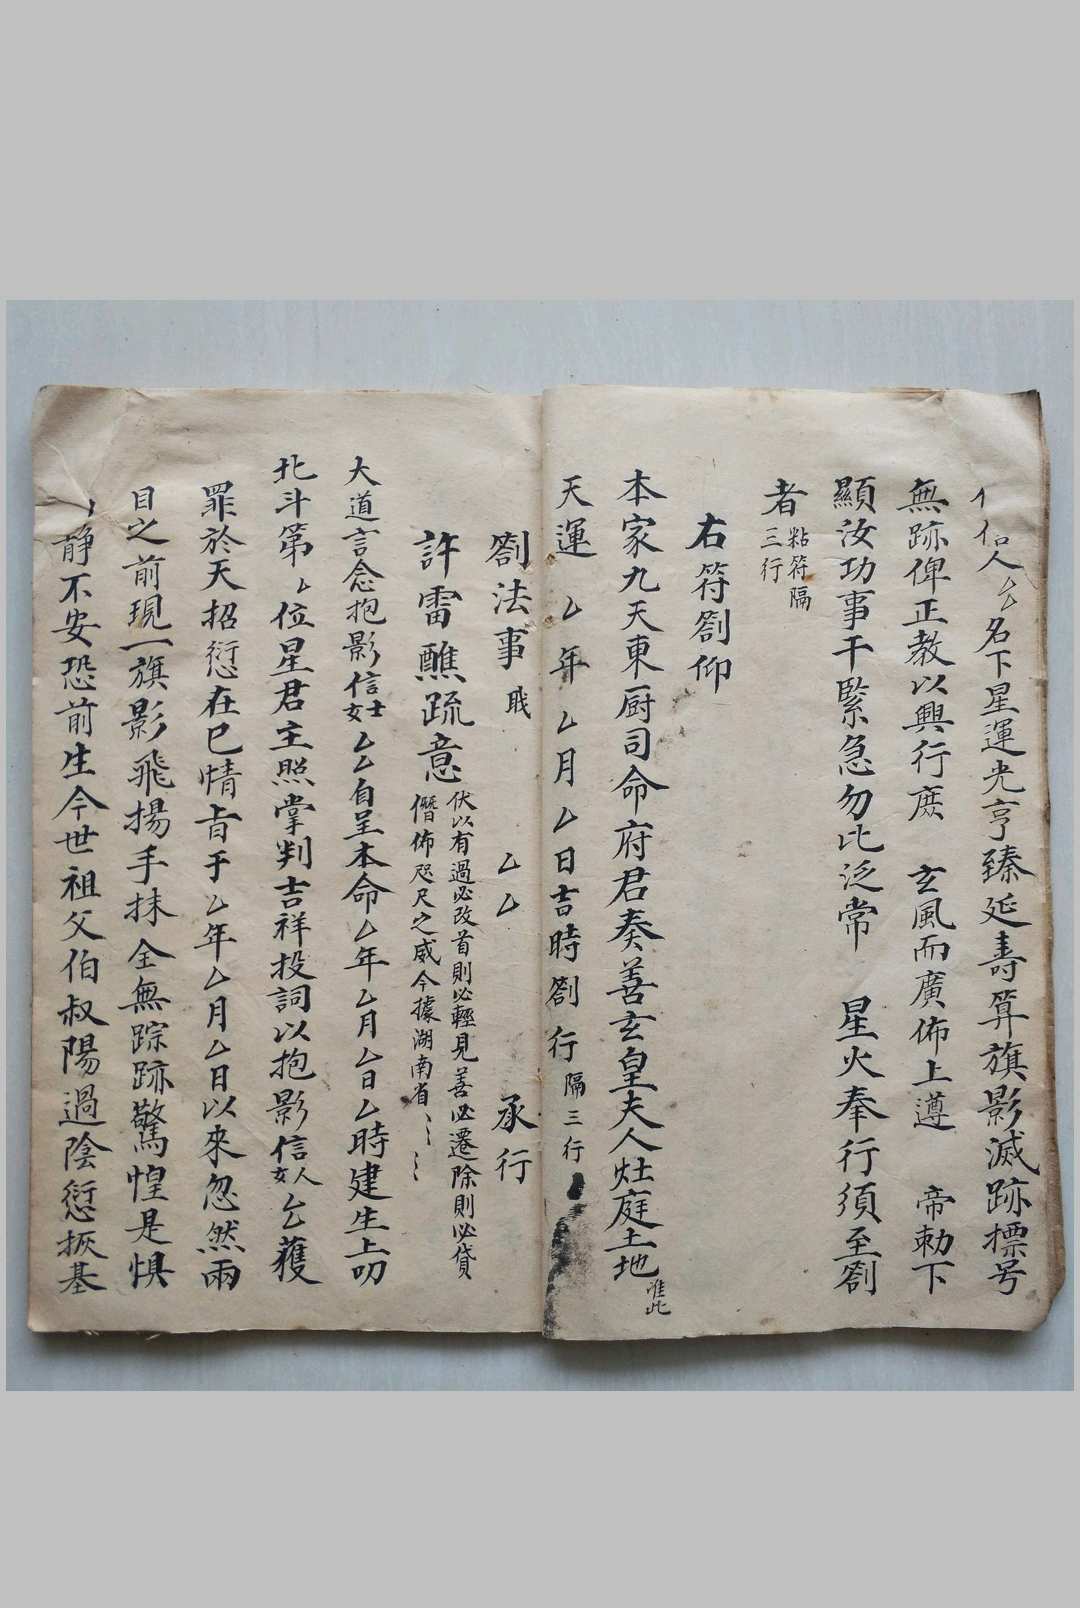 人厶名下星運光亨臻延壽算旗影滅跡摽号
無跡俾正教以興行庶 玄風而廣佈上遵 帝勅下
顯汝功事干緊急勿比泛常 星火奉行須至劄
者 粘符隔三行
右符劄仰
本家九天東厨司命府君奏善玄皇夫人灶庭土地 准此
天運厶年厶月厶日吉時劄行 隔三行
劄法事 戢 厶厶 承行
許雷醮疏意 伏以有過必改首則必輕見善必遷除則必貸
僭佈咫尺之威今據湖南省
大道言念抱影信士女厶厶自呈本命厶年厶月厶日厶時建生上叨
北斗第厶位星君主照掌判吉祥投詞以抱影信人女厶獲
罪於天招愆在巳情旨于厶年厶月厶日以來忽然兩
目之前現一旗影飛揚手抹全無踪跡驚惶是惧
静不安恐前生今世祖父伯叔陽過陰愆扳基